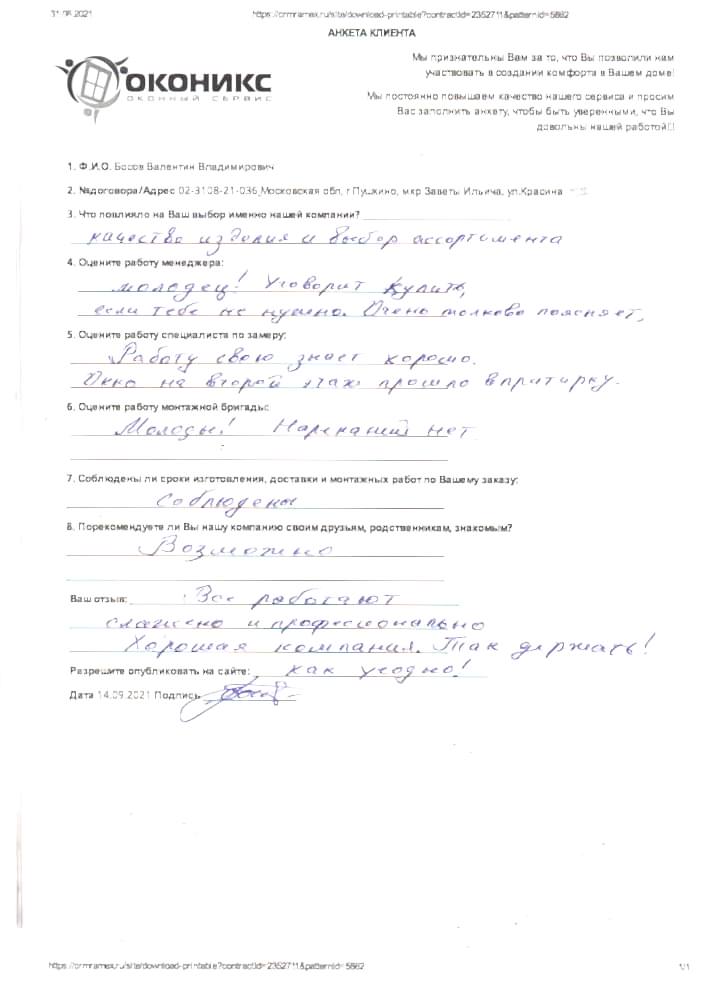 31.08.2021 https://crmramex.ru/site/download-printable?contractId=2352711&patternId=5862
АНКЕТА КЛИЕНТА
ОКОНИКС
ОКОННЫЙ СЕРВИС
Мы признательны Вам за то, что Вы позволили нам
участвовать в создании комфорта в Вашем доме!
Мы постоянно повышаем качество нашего сервиса и просим
Вас заполнить анкету, чтобы быть уверенными, что Вы
довольны нашей работой
1. Ф.И.О. Босов Валентин Владимирович
2. №договора/Адрес 02-3108-21-036,Московская обл, г Пушкино, мкр Заветы Ильича, ул.Красина
3. Что повлияло на Ваш выбор именно нашей компании?
качество изделия и выбор ассортимента
4. Оцените работу менеджера:
молодец! Уговорит купить,
если тебе не нужно. Очень толково поясняет,
5. Оцените работу специалиста по замеру:
Работу свою знает хорошо.
Окно на второй этаж прошло впритирку.
6. Оцените работу монтажной бригады:
Молодцы! Нареканий нет
7. Соблюдены ли сроки изготовления, доставки и монтажных работ по Вашему заказу:
Соблюдены
8. Порекомендуете ли Вы нашу компанию своим друзьям, родственникам, знакомым?
Возможно
Ваш отзыв: Все работают
слажено и професионально
Хорошая компания. Так держать!
Разрешите опубликовать на сайте: как угодно!
Дата 14.09.2021 Подпись
https://crmramex.ru/site/download-printable?contractId=2352711&patternId=5862 1/1